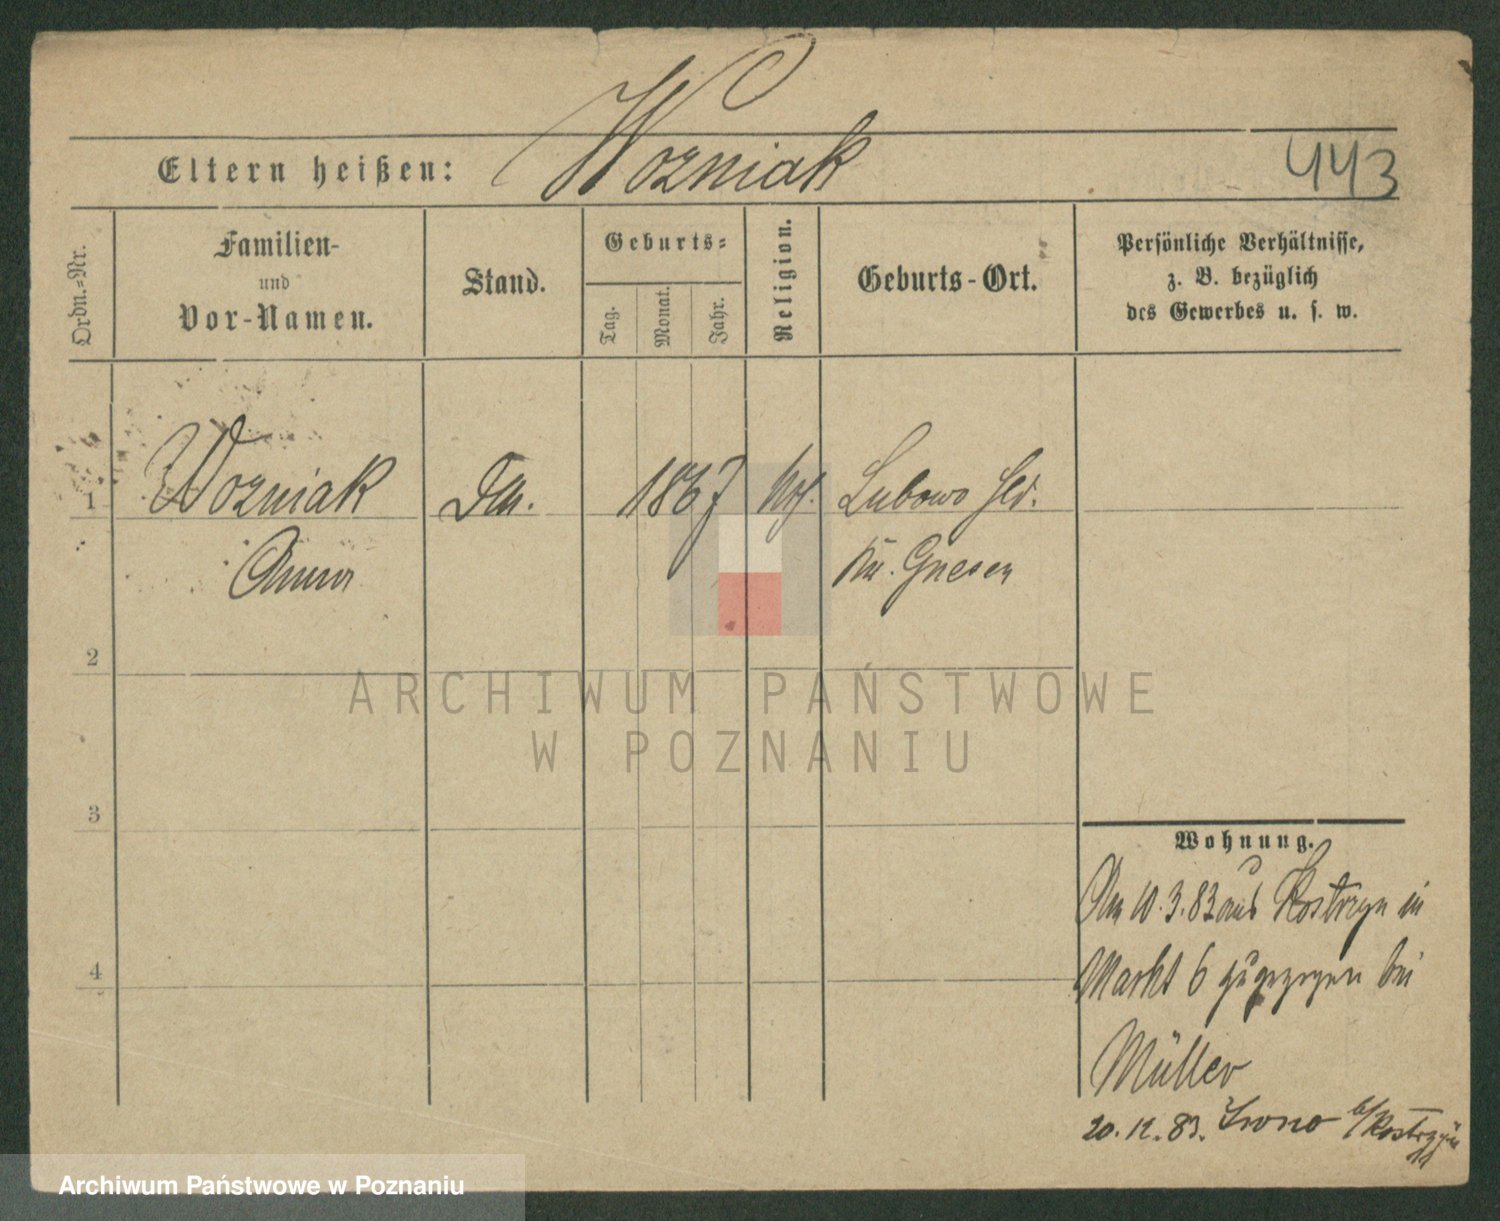 Wozniak
443
Eltern heißen:
Ordn.=Nr.
Familien-
und
Vor-Namen.
Stand.
Geburts=
Tag.
Monat.
Jahr.
Religion.
Geburts-Ort.
Persönliche Verhältnisse,
z. B. bezüglich
des Gewerbes u. s. w.
1
Wozniak
1867
Lubowo
Anna
Kr. Gnesen
2
ARCHIWUM PAŃSTWOWE
W POZNANIU
3
Wohnung.
Am 10.3.83 aus Kostrzyn in
4
Markt 6 zugezogen bei
Müller
20.12.83.
Archiwum Państwowe w Poznaniu